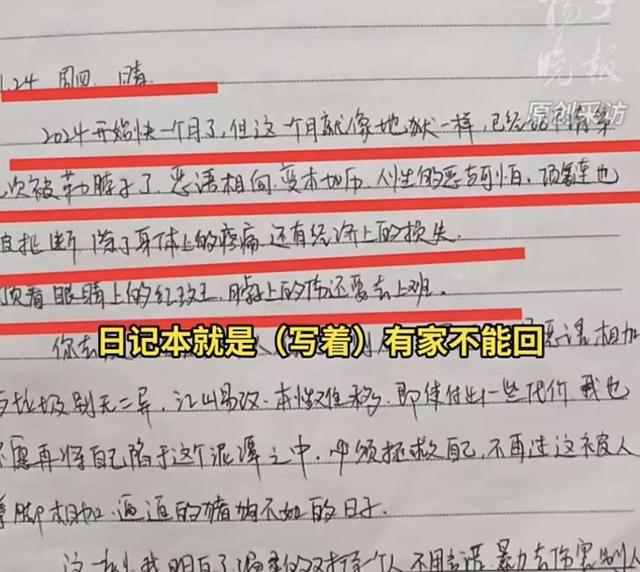 扬子晚报
原创采访
1.24 周四 晴.
2024开始快一个月了,但这一个月就像地狱一样,已经记不清第
次被勒脖子了.恶语相向.变本加厉.人性的恶与可怕.项链也
被扯断.除了身体上的疼痛.还有经济上的损失.
顶着眼睛上的红斑.脖子上的伤还要去上班.
日记本就是（写着）有家不能回
恶语相加
与垃圾别无二异,江山易改.本性难移.即使付出一些代价 我也
不愿再将自己陷于这个泥潭之中.必须拯救自己,不再过这被人
拳脚相加.逼迫的猪狗不如的日子.
这一刻我明白了
不用言语.暴力去伤害别人